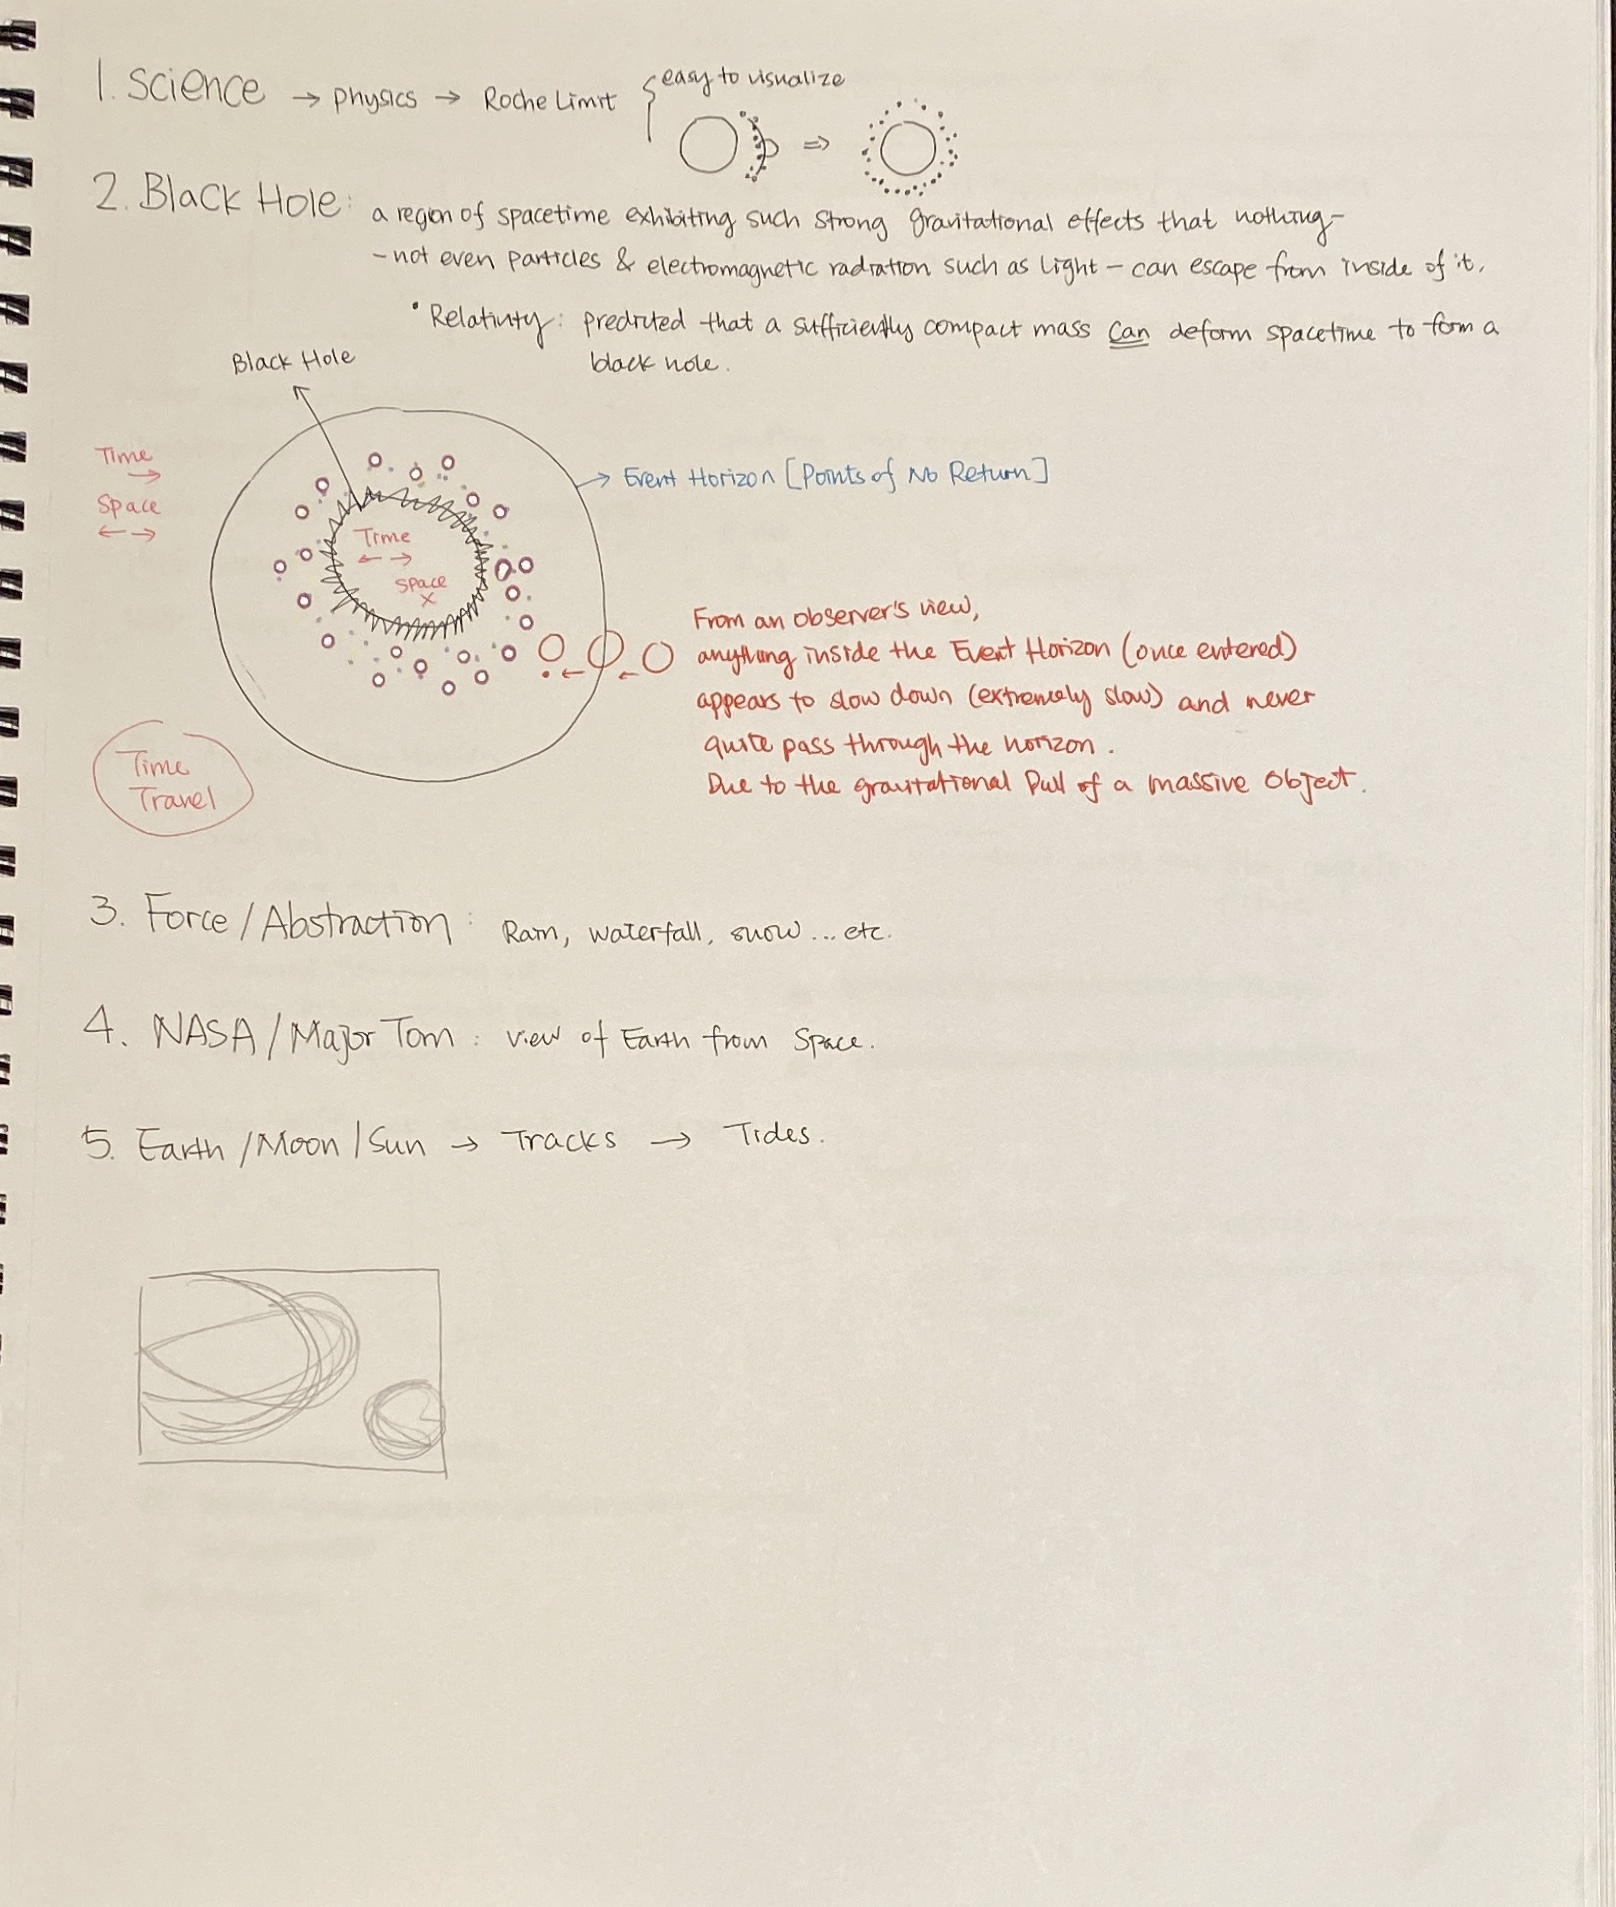 1. Science → Physics → Roche Limit
easy to visualize
2. Black Hole: a region of spacetime exhibiting such strong gravitational effects that nothing-
-not even particles & electromagnetic radiation such as light - can escape from inside of it.
• Relativity: predicted that a sufficiently compact mass can deform spacetime to form a
black hole.
Black Hole
Time
→
Space
← →
Event Horizon [Points of No Return]
Time
← →
Space
×
From an observer's view,
anything inside the Event Horizon (once entered)
appears to slow down (extremely slow) and never
quite pass through the horizon.
Due to the gravitational Pull of a massive object.
Time
Travel
3. Force / Abstraction: Rain, waterfall, snow ... etc.
4. NASA / Major Tom: view of Earth from Space.
5. Earth / Moon / Sun → Tracks → Tides.